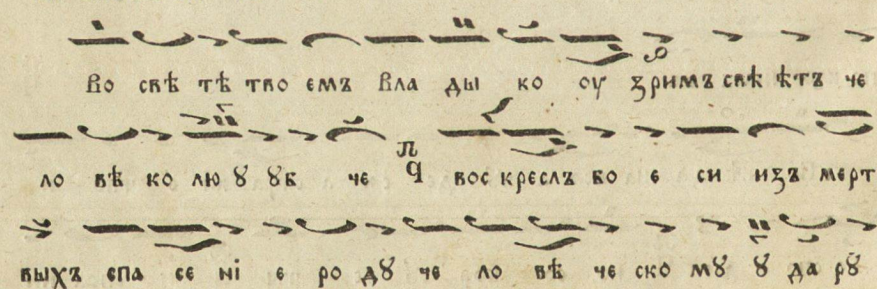 Во свѣ тѣ тво емъ Вла ды ко оу зримъ свѣ ѣтъ че
ло вѣ ко лю ꙋ ꙋб че вос креслъ бо е си изъ мерт
выхъ спа се ні е ро дꙋ че ло вѣ че ско мꙋ ꙋ да рꙋ